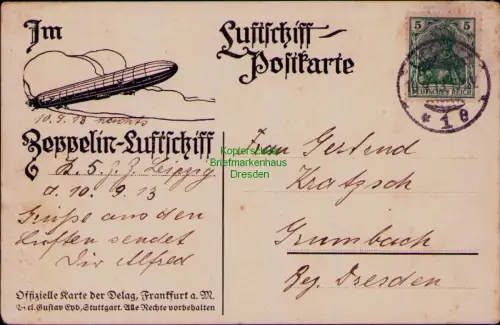 Im
Luftschiff-
Postkarte
5 5
DEUTSCHES REICH
* 1 e
10.9.13
Zeppelin-Luftschiff
Z. 5. Leipzig
d. 10.9.13
Grüße aus den
Lüften sendet
Dir Alfred
Frau Gertrud
Kratzsch
Grumbach
Bez. Dresden
Kopierschutz
Briefmarkenhaus
Dresden
Offizielle Karte der Delag, Frankfurt a. M.
Gustav Eyb, Stuttgart. Alle Rechte vorbehalten